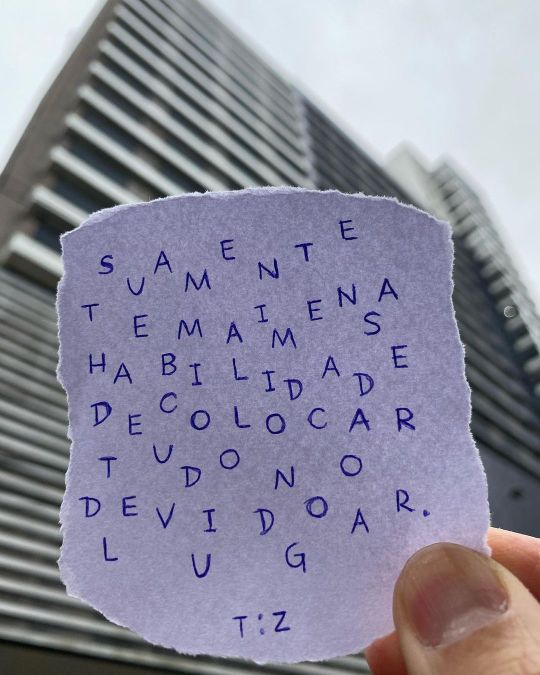 SUA MENTE
TEM A IMENSA
HABILIDADE
DE COLOCAR
TUDO NO
DEVIDO
LUGAR.
T:Z